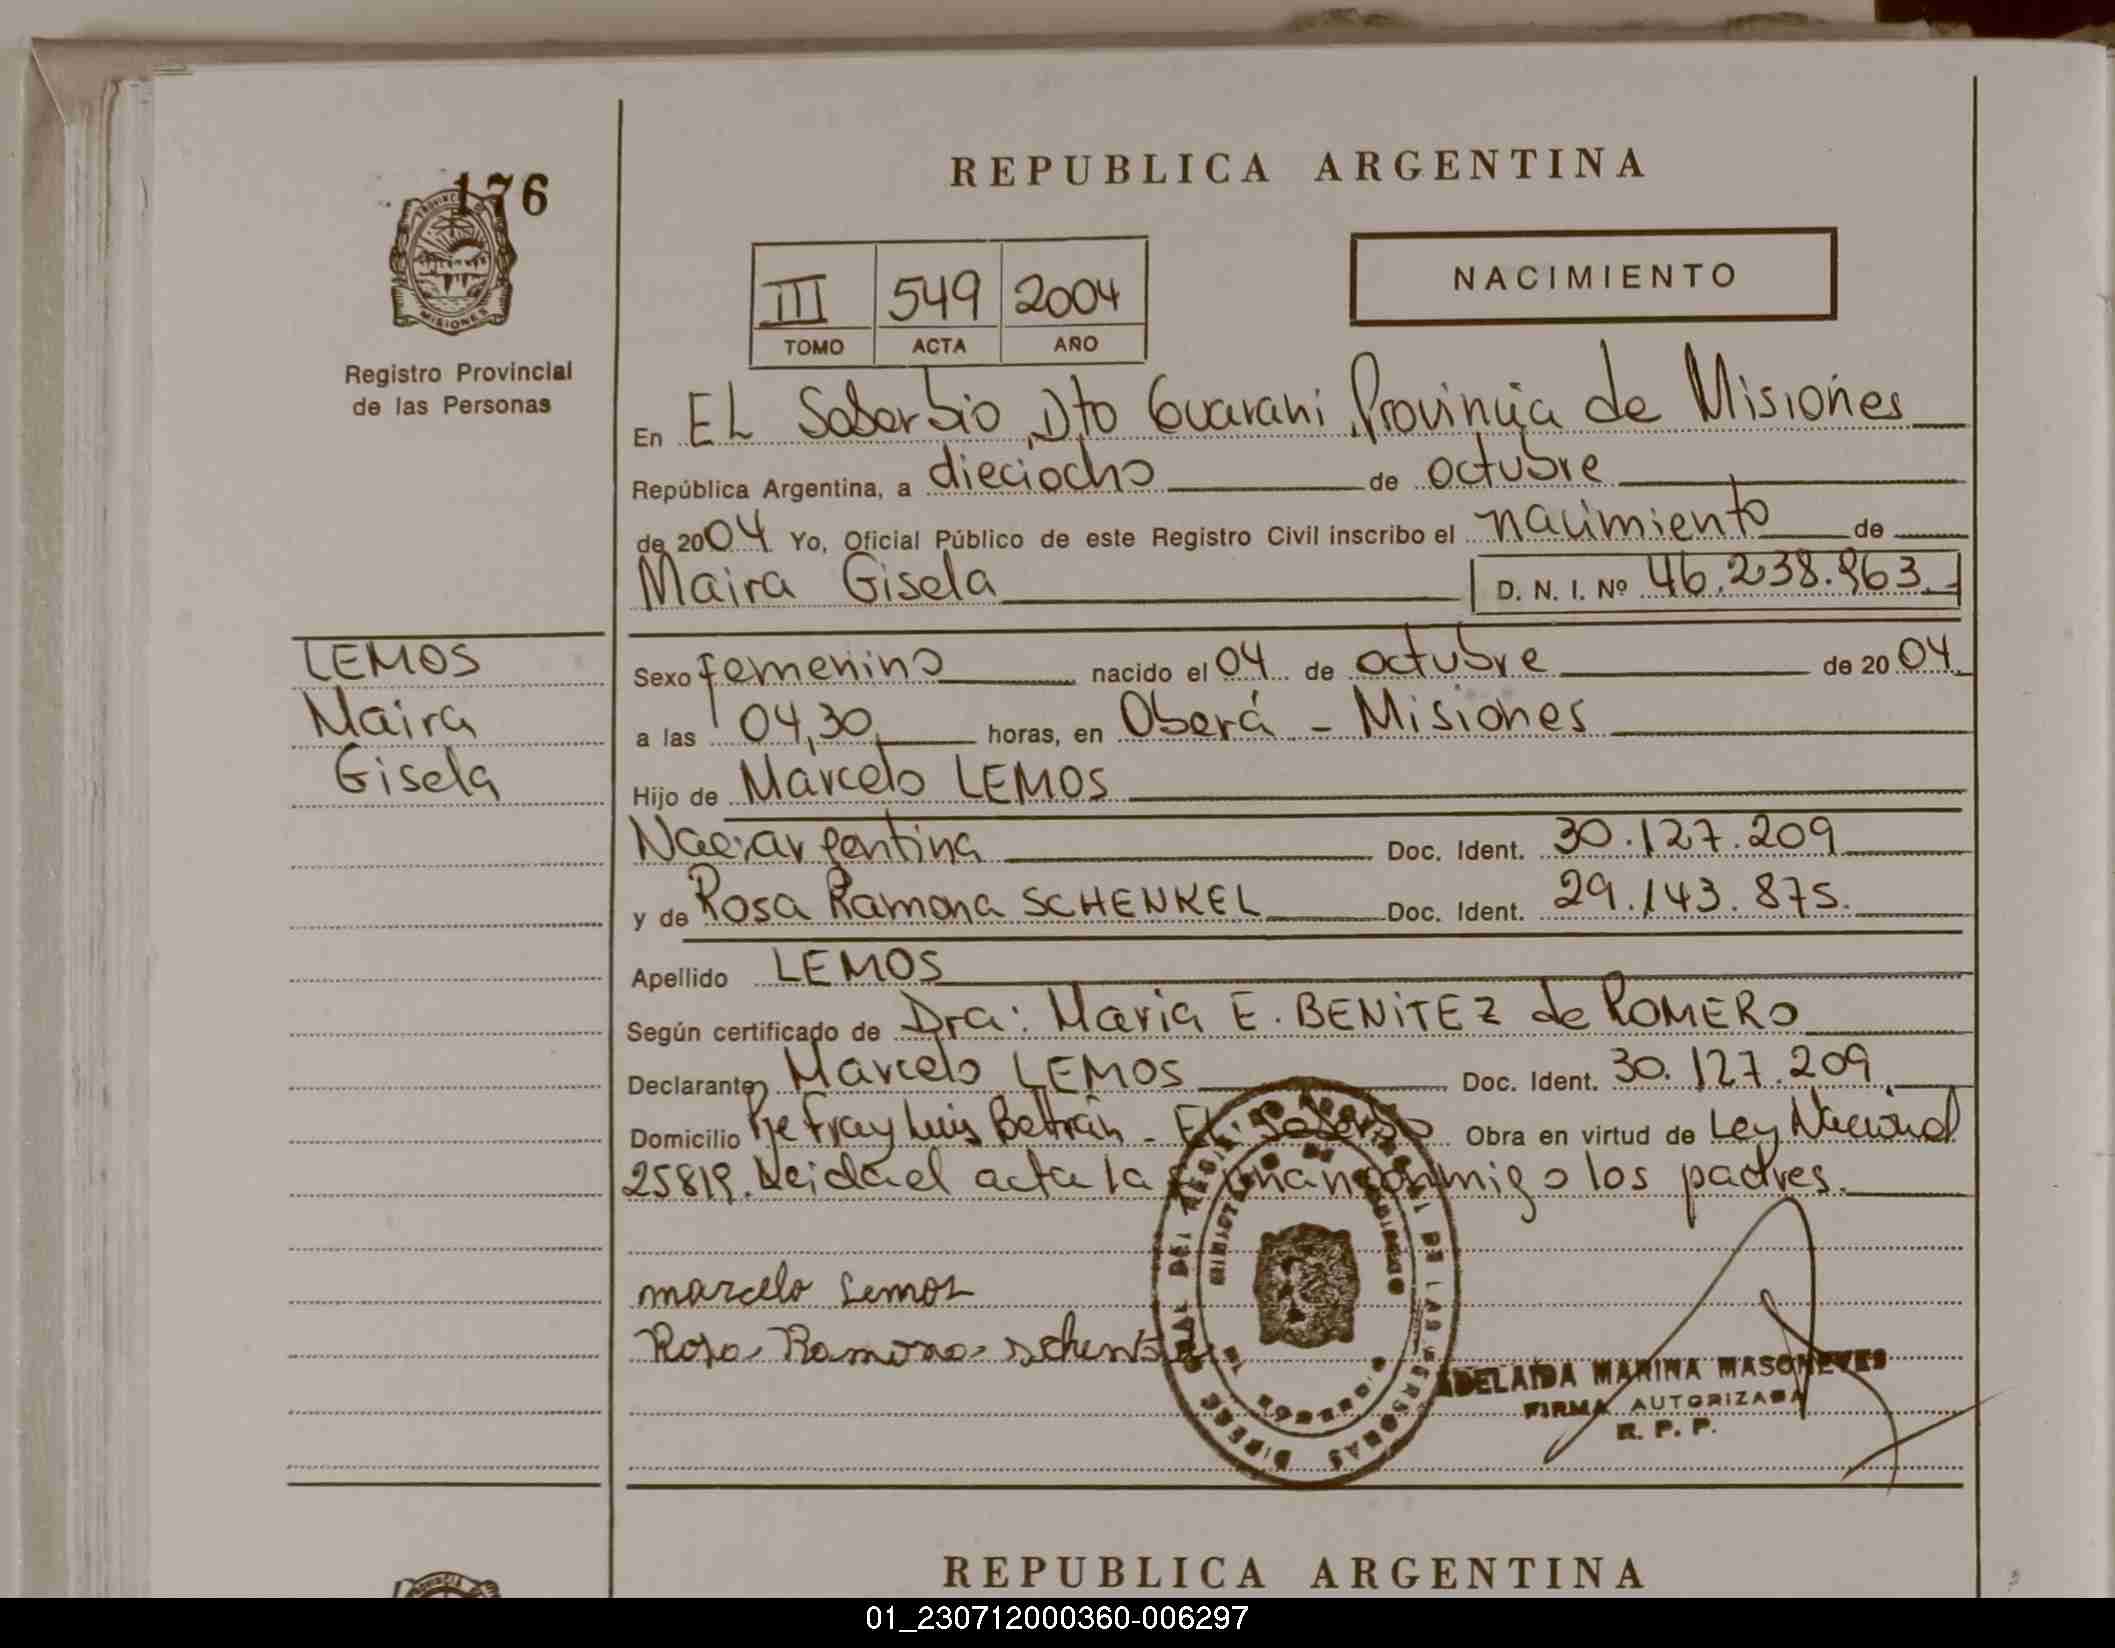 176
REPUBLICA ARGENTINA
III 549 2004
TOMO ACTA AÑO
NACIMIENTO
PROVINCIA DE
MISIONES
Registro Provincial
de las Personas
En EL Soberbio, Dto Guarani, Provincia de Misiones
República Argentina, a dieciocho de octubre
de 2004 Yo, Oficial Público de este Registro Civil inscribo el nacimiento de
Maira Gisela D. N. I. Nº 46.238.963.
LEMOS
Maira
Gisela
Sexo femenino nacido el 04 de octubre de 2004.
a las 04,30 horas, en Oberá - Misiones
Hijo de Marcelo LEMOS
Nac: argentina Doc. Ident. 30.127.209
y de Rosa Ramona SCHENKEL Doc. Ident. 29.143.875.
Apellido LEMOS
Según certificado de Dra: Maria E. BENITEZ de ROMERO
Declarante Marcelo LEMOS Doc. Ident. 30.127.209
Domicilio Pje Fray Luis Beltrán - EL Soberbio Obra en virtud de Ley Nacional
25819. Leida el acta la firman conmigo los padres.
marcelo Lemos
Rosa Ramona schenkel
ADELAIDA MARINA MASONEVES
FIRMA AUTORIZADA
R. P. P.
REPUBLICA ARGENTINA
01_230712000360-006297